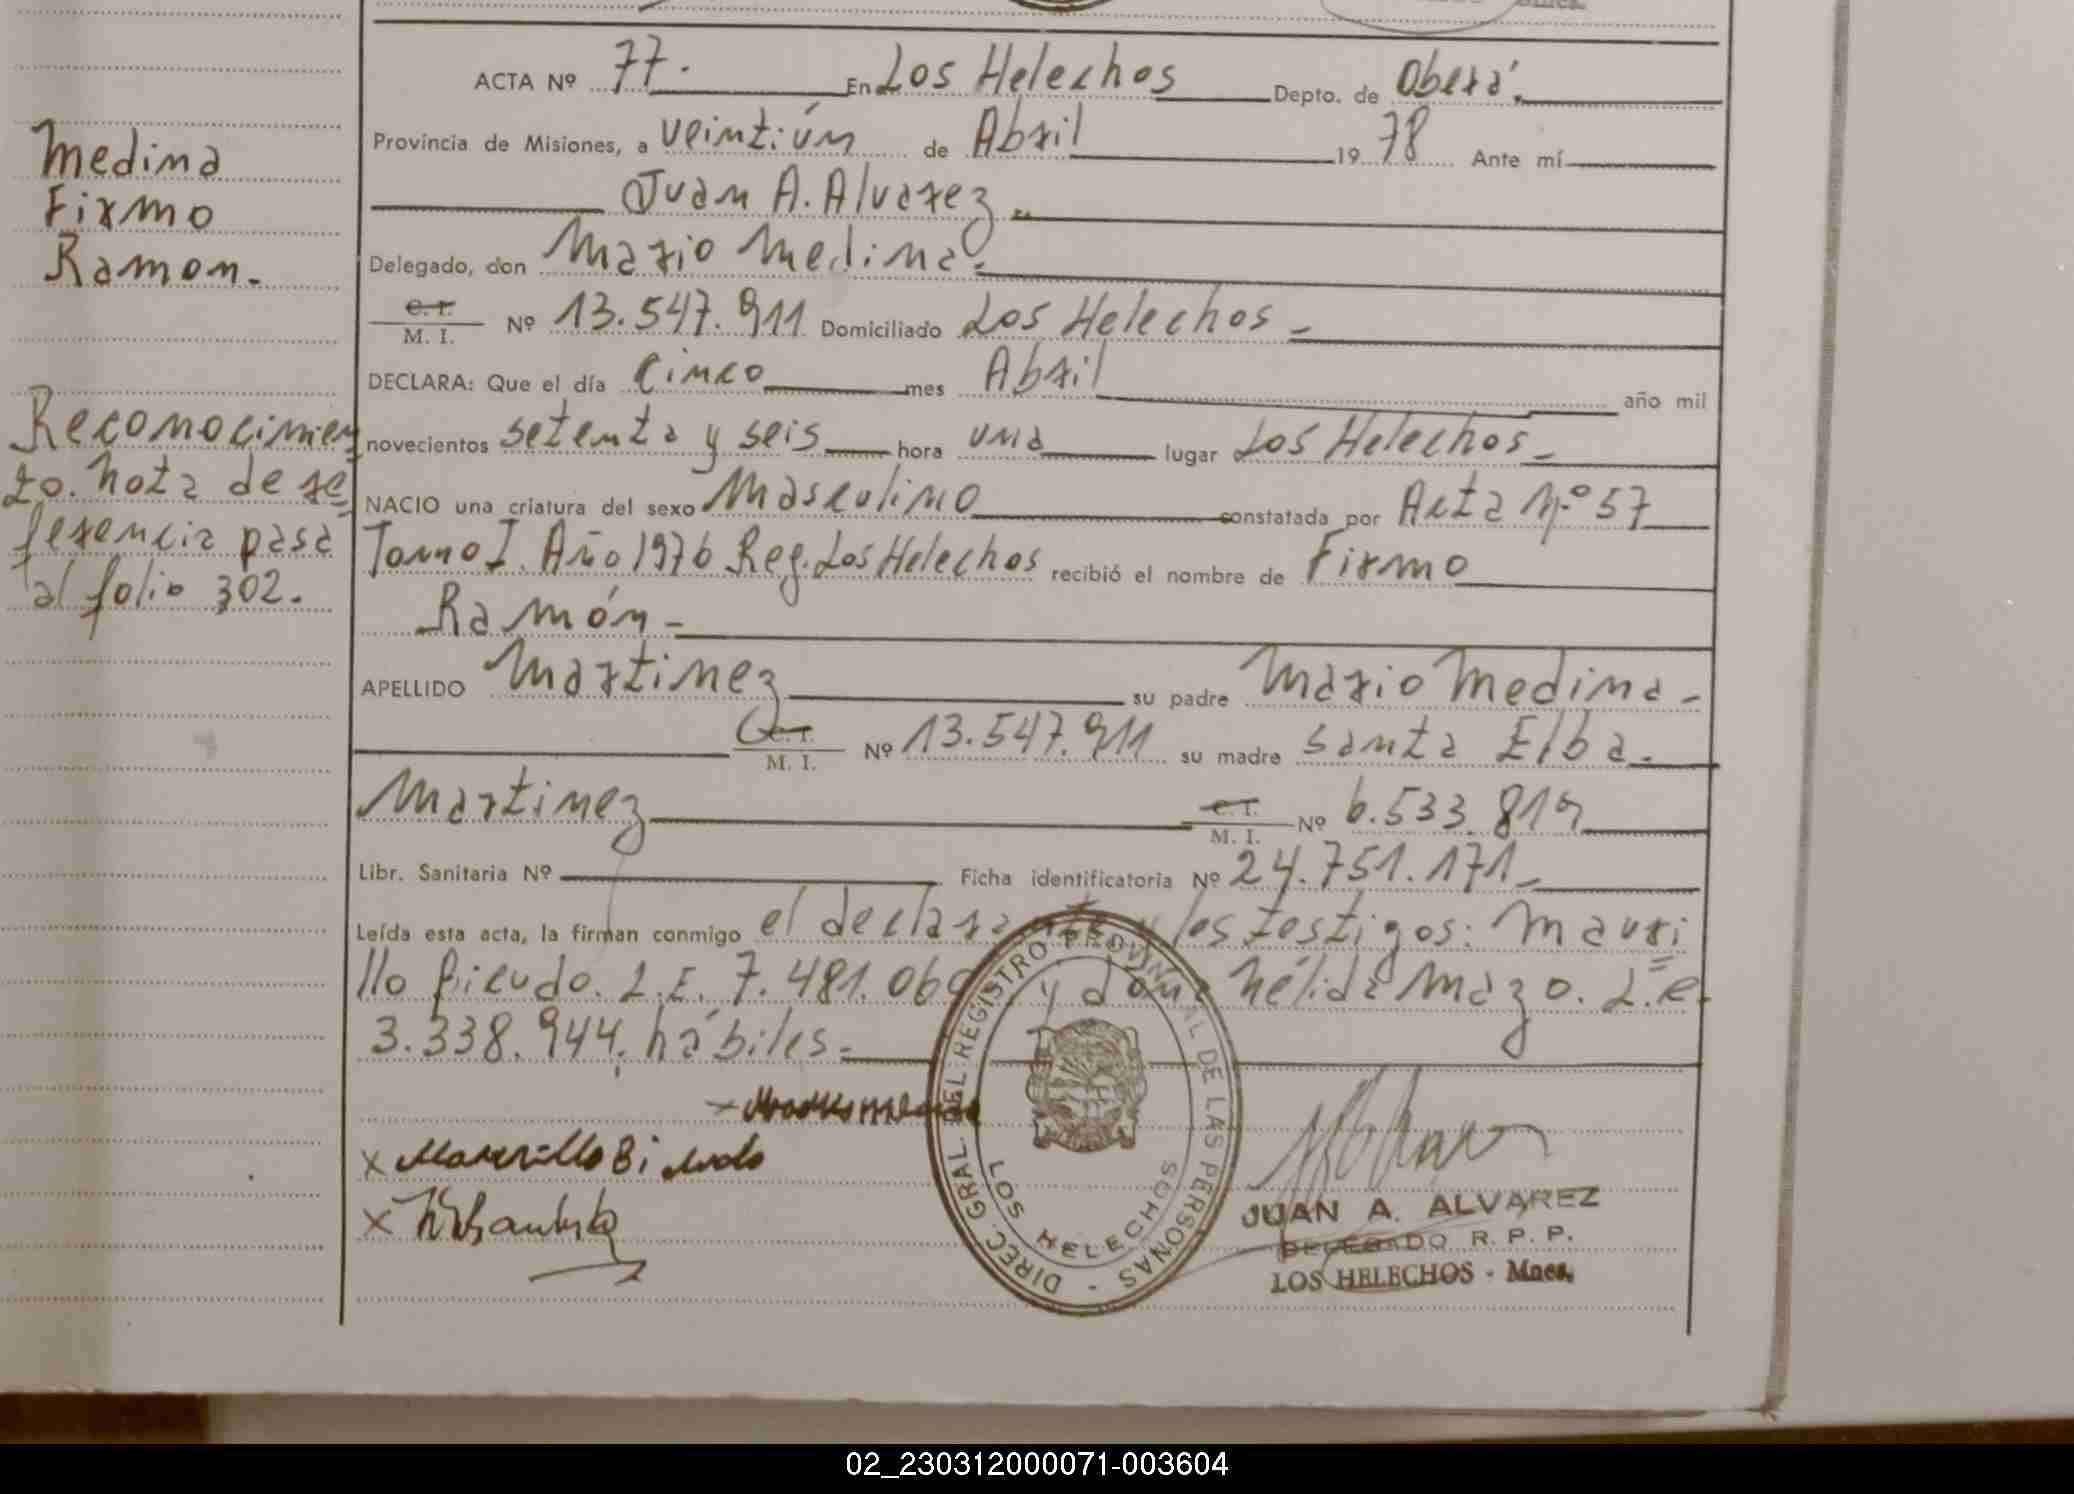 Mnes.
ACTA Nº 77. En Los Helechos Depto. de Oberá.
Provincia de Misiones, a veintiún de Abril 19 78 Ante mí
Juan A. Alvarez
Delegado, don Mario Medina.
C. I.
M. I. Nº 13.547.911 Domiciliado Los Helechos
DECLARA: Que el día Cinco mes Abril año mil
novecientos setenta y seis hora una lugar Los Helechos
NACIO una criatura del sexo Masculino constatada por Acta Nº 57
Tomo I. Año 1976 Reg. Los Helechos recibió el nombre de Firmo
Ramón -
APELLIDO Martinez su padre Mario Medina -
C. I.
M. I. Nº 13.547.911 su madre Santa Elba.
Martinez C. I.
M. I. Nº 6.533.819
Libr. Sanitaria Nº Ficha identificatoria Nº 24.751.171
Leída esta acta, la firman conmigo el declarante y los testigos: Mauri
llo L.E. 7.481.060 y doña Nélida Mazo. L.E.
3.338.944. hábiles.
Medina
Firmo
Ramon.
Reconocimien
to. Nota de re
ferencia pasa
al folio 302.
DIREC. GRAL. DEL REGISTRO PROVINCIAL DE LAS PERSONAS -
LOS HELECHOS
JUAN A. ALVAREZ
DELEGADO R. P. P.
LOS HELECHOS - Mnes.
02_230312000071-003604